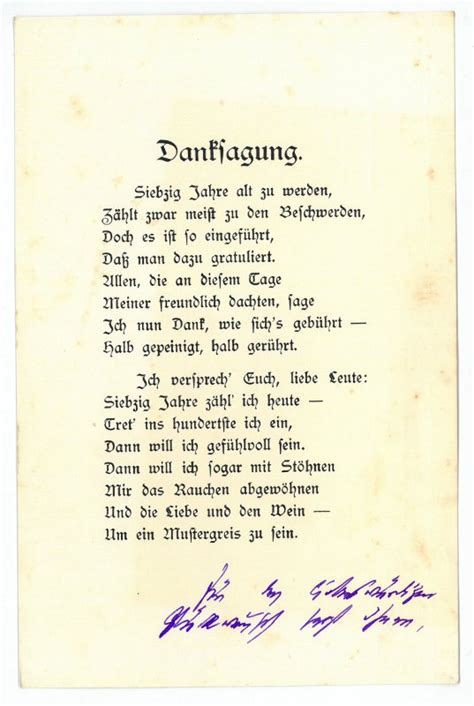 Danksagung.
Siebzig Jahre alt zu werden,
Zählt zwar meist zu den Beschwerden,
Doch es ist so eingeführt,
Daß man dazu gratuliert.
Allen, die an diesem Tage
Meiner freundlich dachten, sage
Ich nun Dank, wie sich's gebührt —
Halb gepeinigt, halb gerührt.
Ich versprech' Euch, liebe Leute:
Siebzig Jahre zähl' ich heute —
Tret' ins hundertste ich ein,
Dann will ich gefühlvoll sein.
Dann will ich sogar mit Stöhnen
Mir das Rauchen abgewöhnen
Und die Liebe und den Wein —
Um ein Mustergreis zu sein.